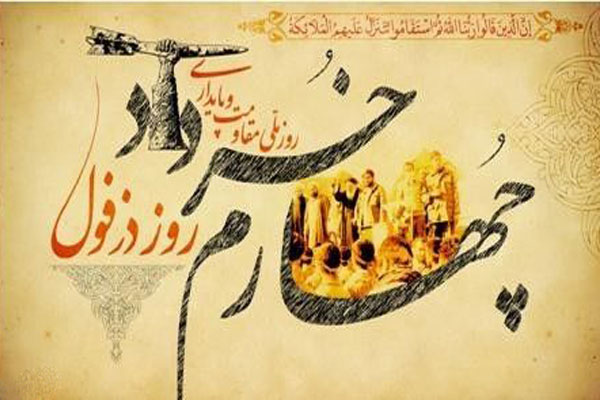 إِنَّ الَّذِينَ قَالُوا رَبُّنَا اللَّهُ ثُمَّ اسْتَقَامُوا تَتَنَزَّلُ عَلَيْهِمُ الْمَلَائِكَةُ
چهارم خُرداد
روز ملّی مقاومت و پایداری
روز دزفول